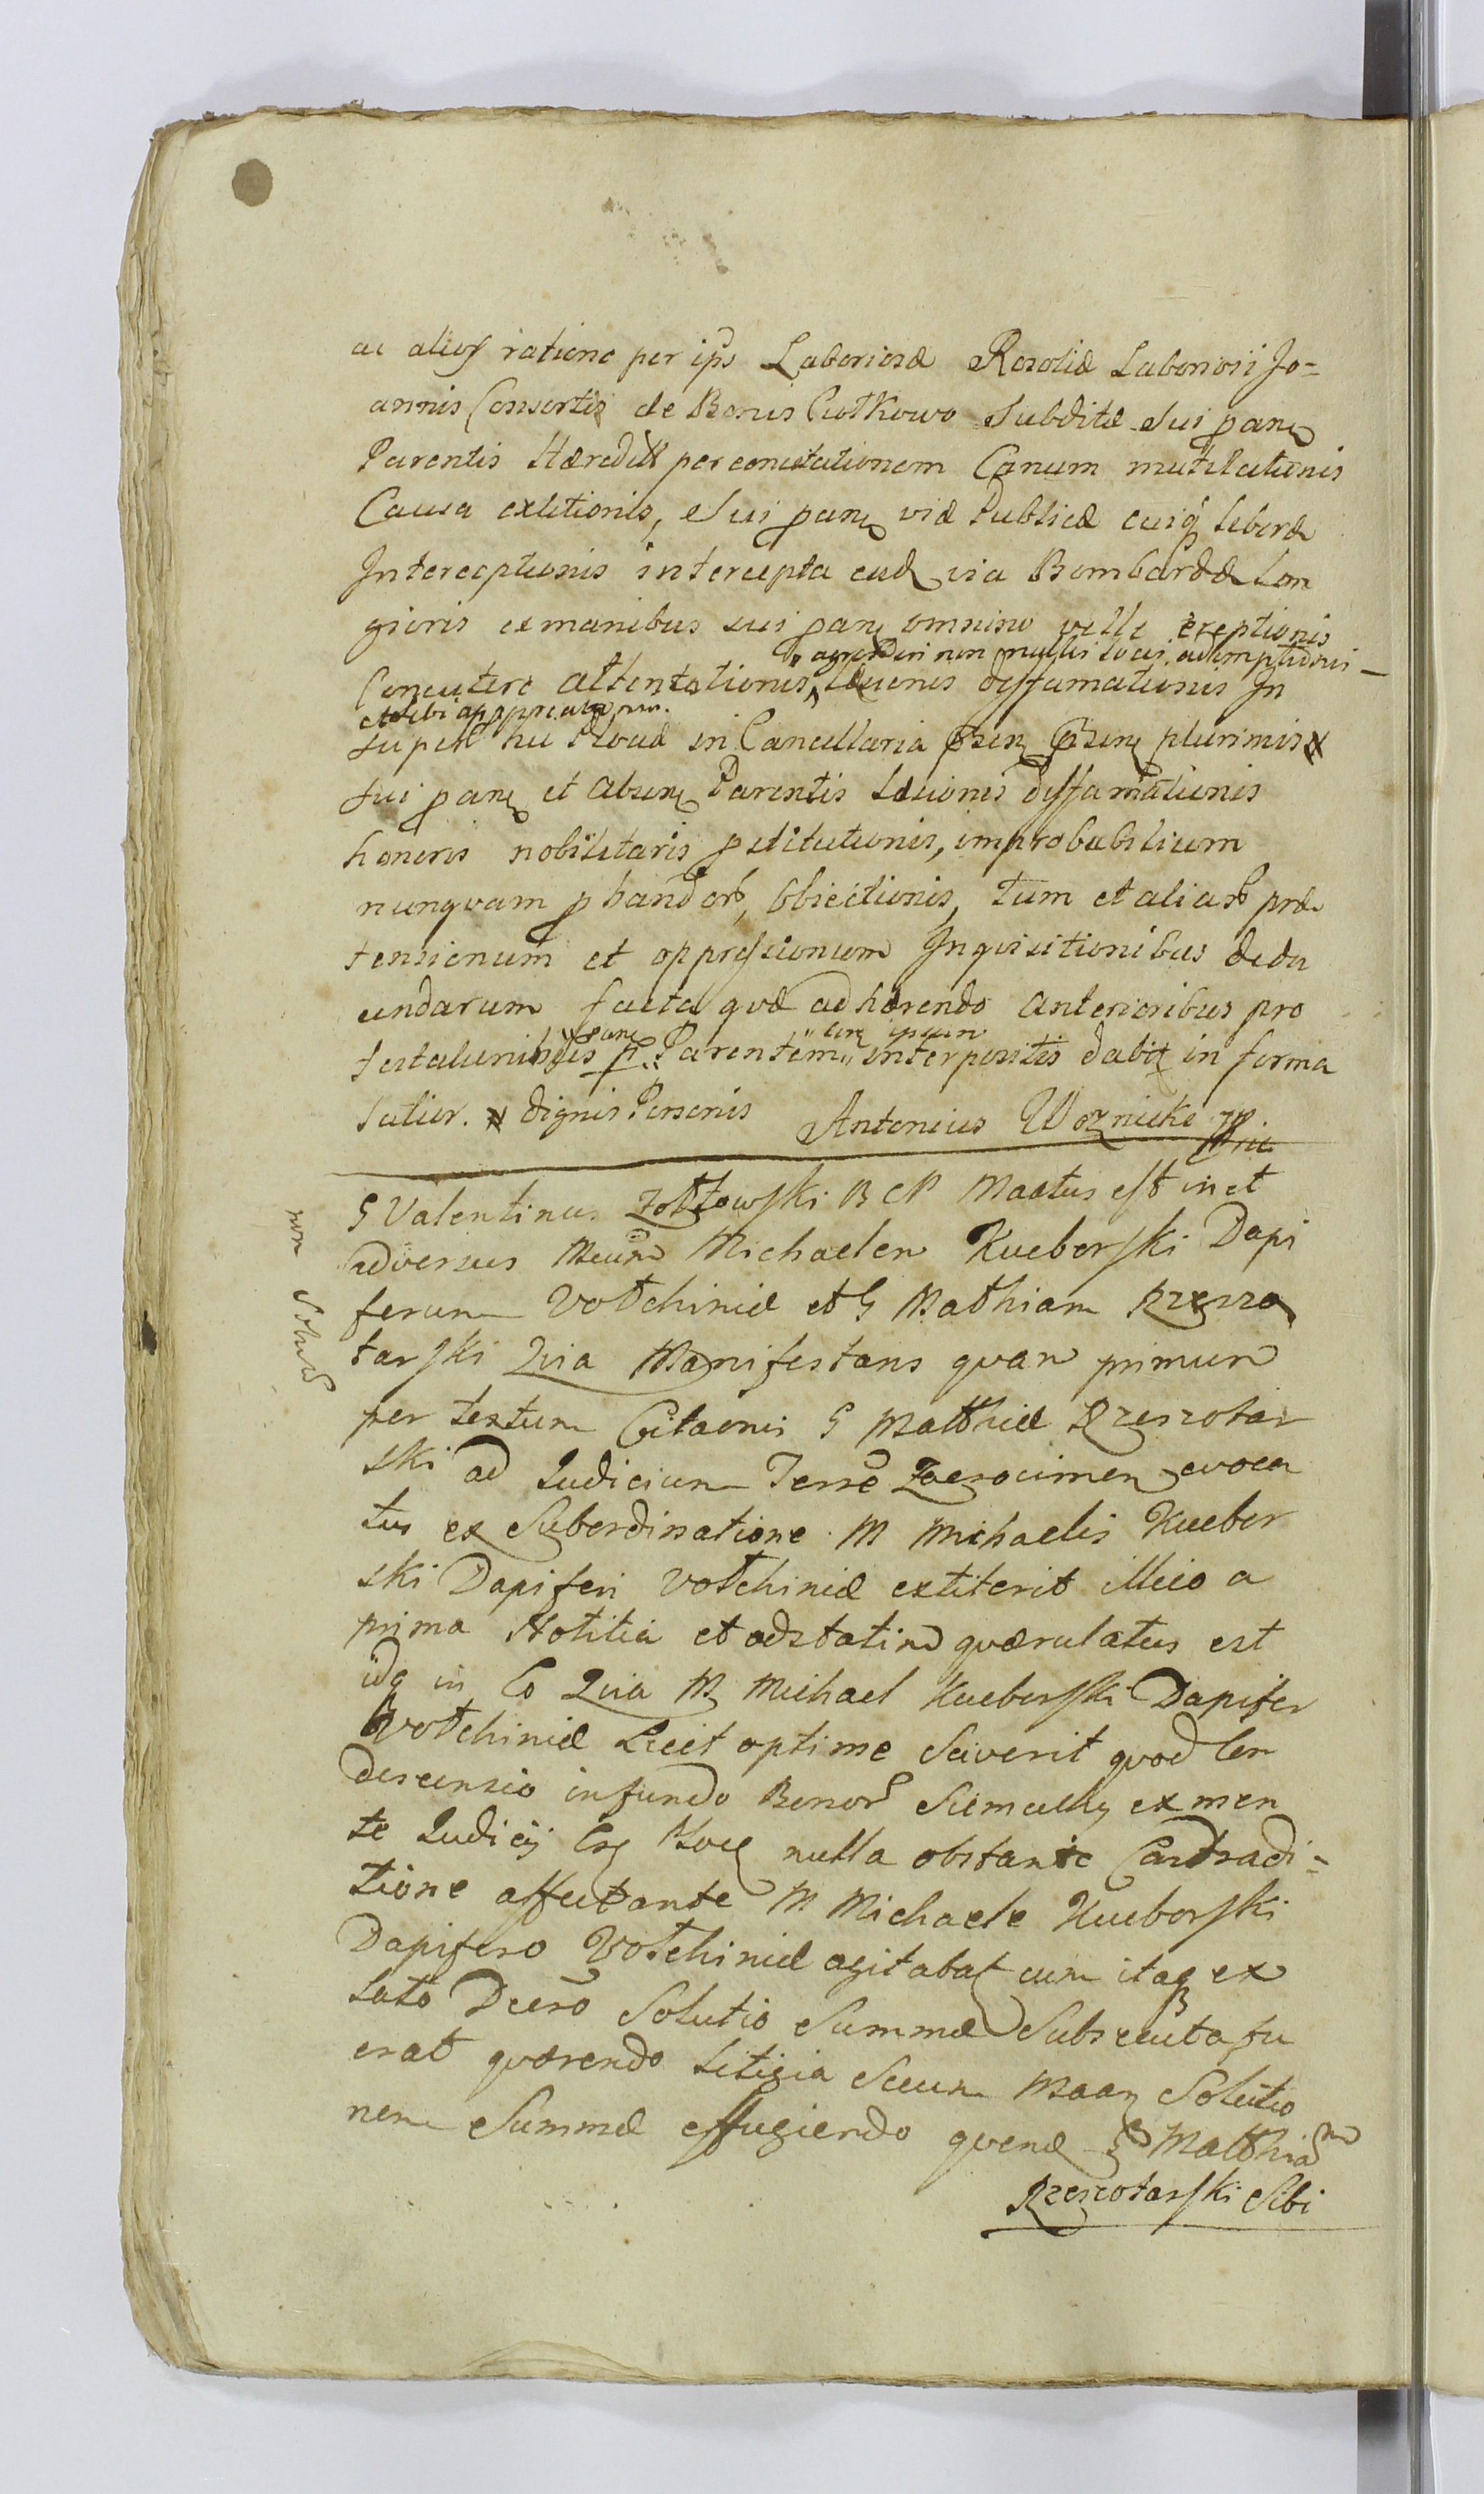 ac alios ratione per ips Laboriosæ Rosoliæ Laboriosi Jo=
annis Consortis de Bonis Ciołkowo Subditæ Sui pane
Parentis Hæredit per concitationem Canum mutilationis
Causa extitionis, Sui pane viæ Publicæ cuiq liberæ
Interceptionis intercepta ead via Bombardæ Lon
gioris ex manibus sui pane omnino velle ereptionis
aggredi non nullis locis adimpletionis
Concutere attentationis, Læsionis diffamationis In
super hic Ploud in Cancellaria psen plurimis
sui pane et absens Parentis Læsionis diffamationis
honoris nobilitaris pstitutionis, improbabilium
nunqvam phandor, Obiectionis, tum et aliar præ
tensionum et oppressionum Inqvisitionibus dedu
cendarum facta qvæ adhærendo anterioribus pro
testationibus p Parentem interpositis dabit in forma
latior. dignis Personis Antonius Woznicki mp
G Valentinus Zołtowski B C P Maatus est in et
adversus Mcum Michaelem Kucborski Dapi
ferum Votchiniæ et G Mathiam Rzeszo
tarski Qvia Manifestans qvam primum
per textum Citaonis G Matthiæ Rzeszotar
ski ad Judicium Terre Zaerocimen evoca
tus ex Subordinatione M Michaelis Kucbor
ski Dapiferi Votchiniæ extiterit illico a
prima Notitia et adstatim qværulatus est
idq in Eo Qvia M Michael Kucborski Dapifer
Votchiniæ Licet optime Sciverit qvod Con
descensio in fundo Bonor ex men
te Judicij nulla obstante Contradi=
tione affectante M Michaele Kucborski
Dapifero Votchiniæ agitabat cum itaq ex
lato Dcero Solutio Summæ Subsecuta fu
erat qværendo Litigia Secum Maan Solutio
nem Summæ effugiendo qvend G Matthiam
Rzeszotarski Sibi
non Solus